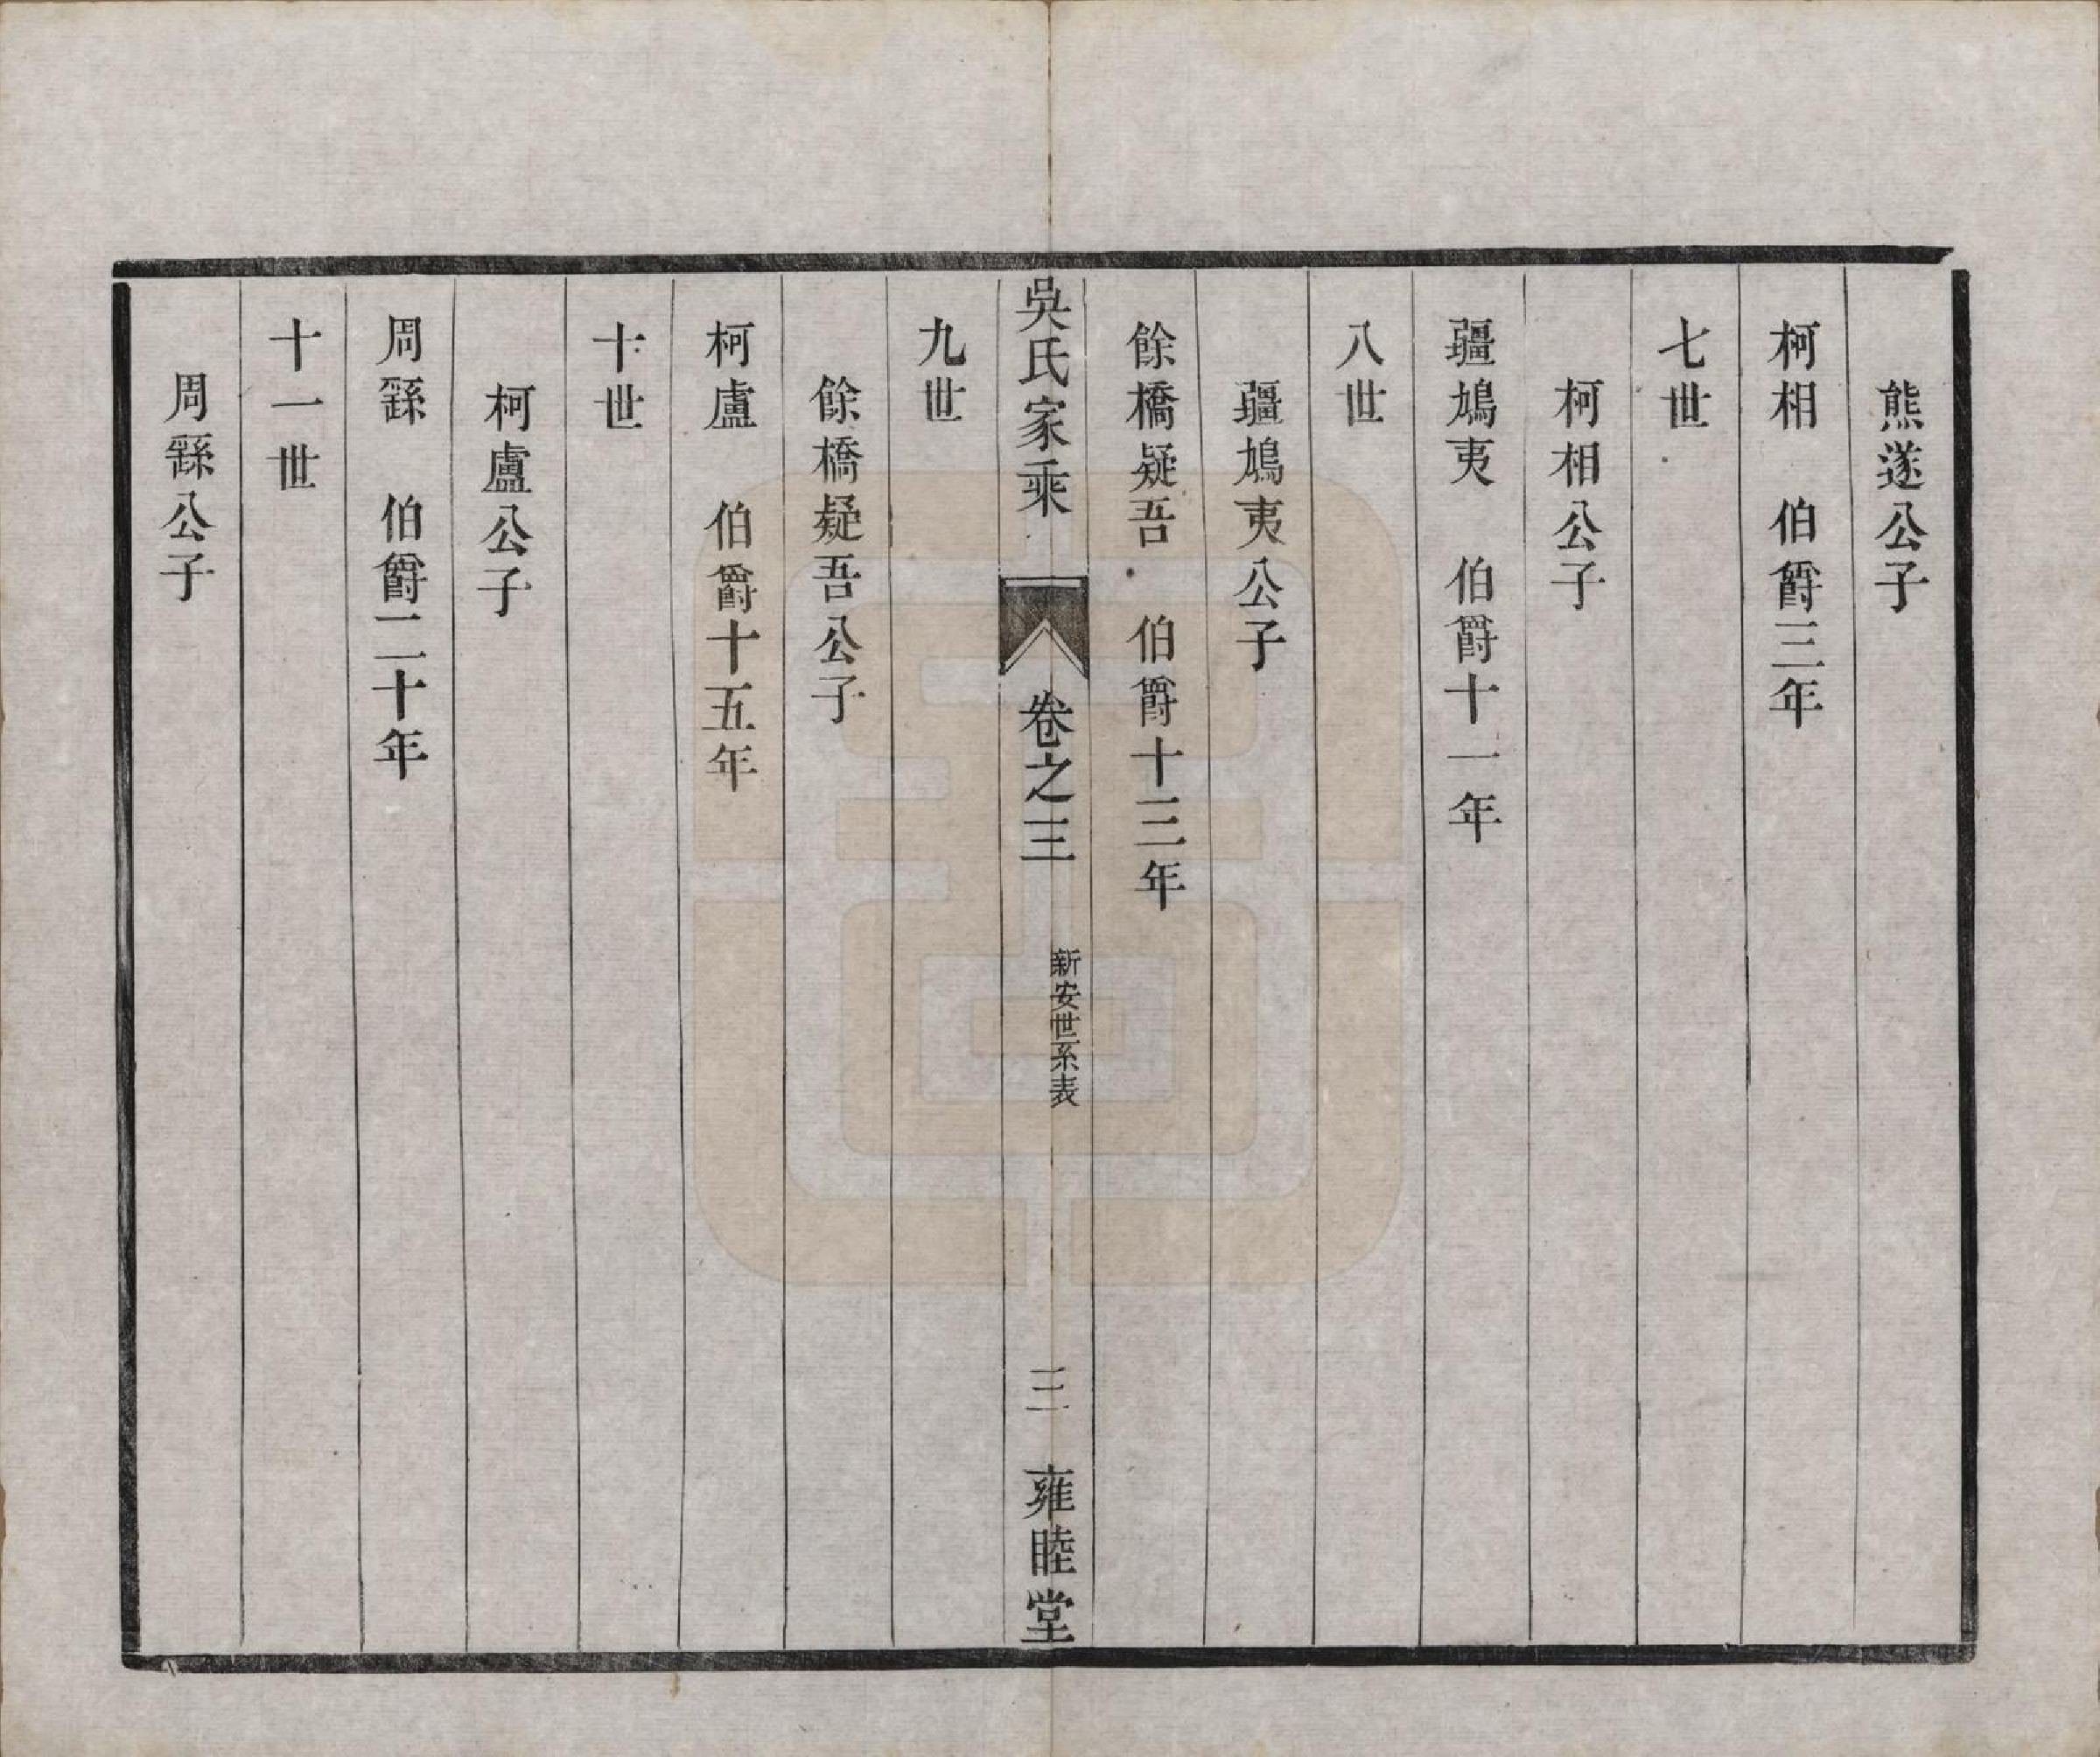 熊遂公子
柯相　伯爵三年
七世
柯相公子
疆鳩夷　伯爵十一年
八世
疆鳩夷公子
餘橋疑吾　伯爵十三年
吳氏家乘　卷之三　新安世系表　三　雍睦堂
九世
餘橋疑吾公子
柯盧　伯爵十五年
十世
柯盧公子
周繇　伯爵二十年
十一世
周繇公子